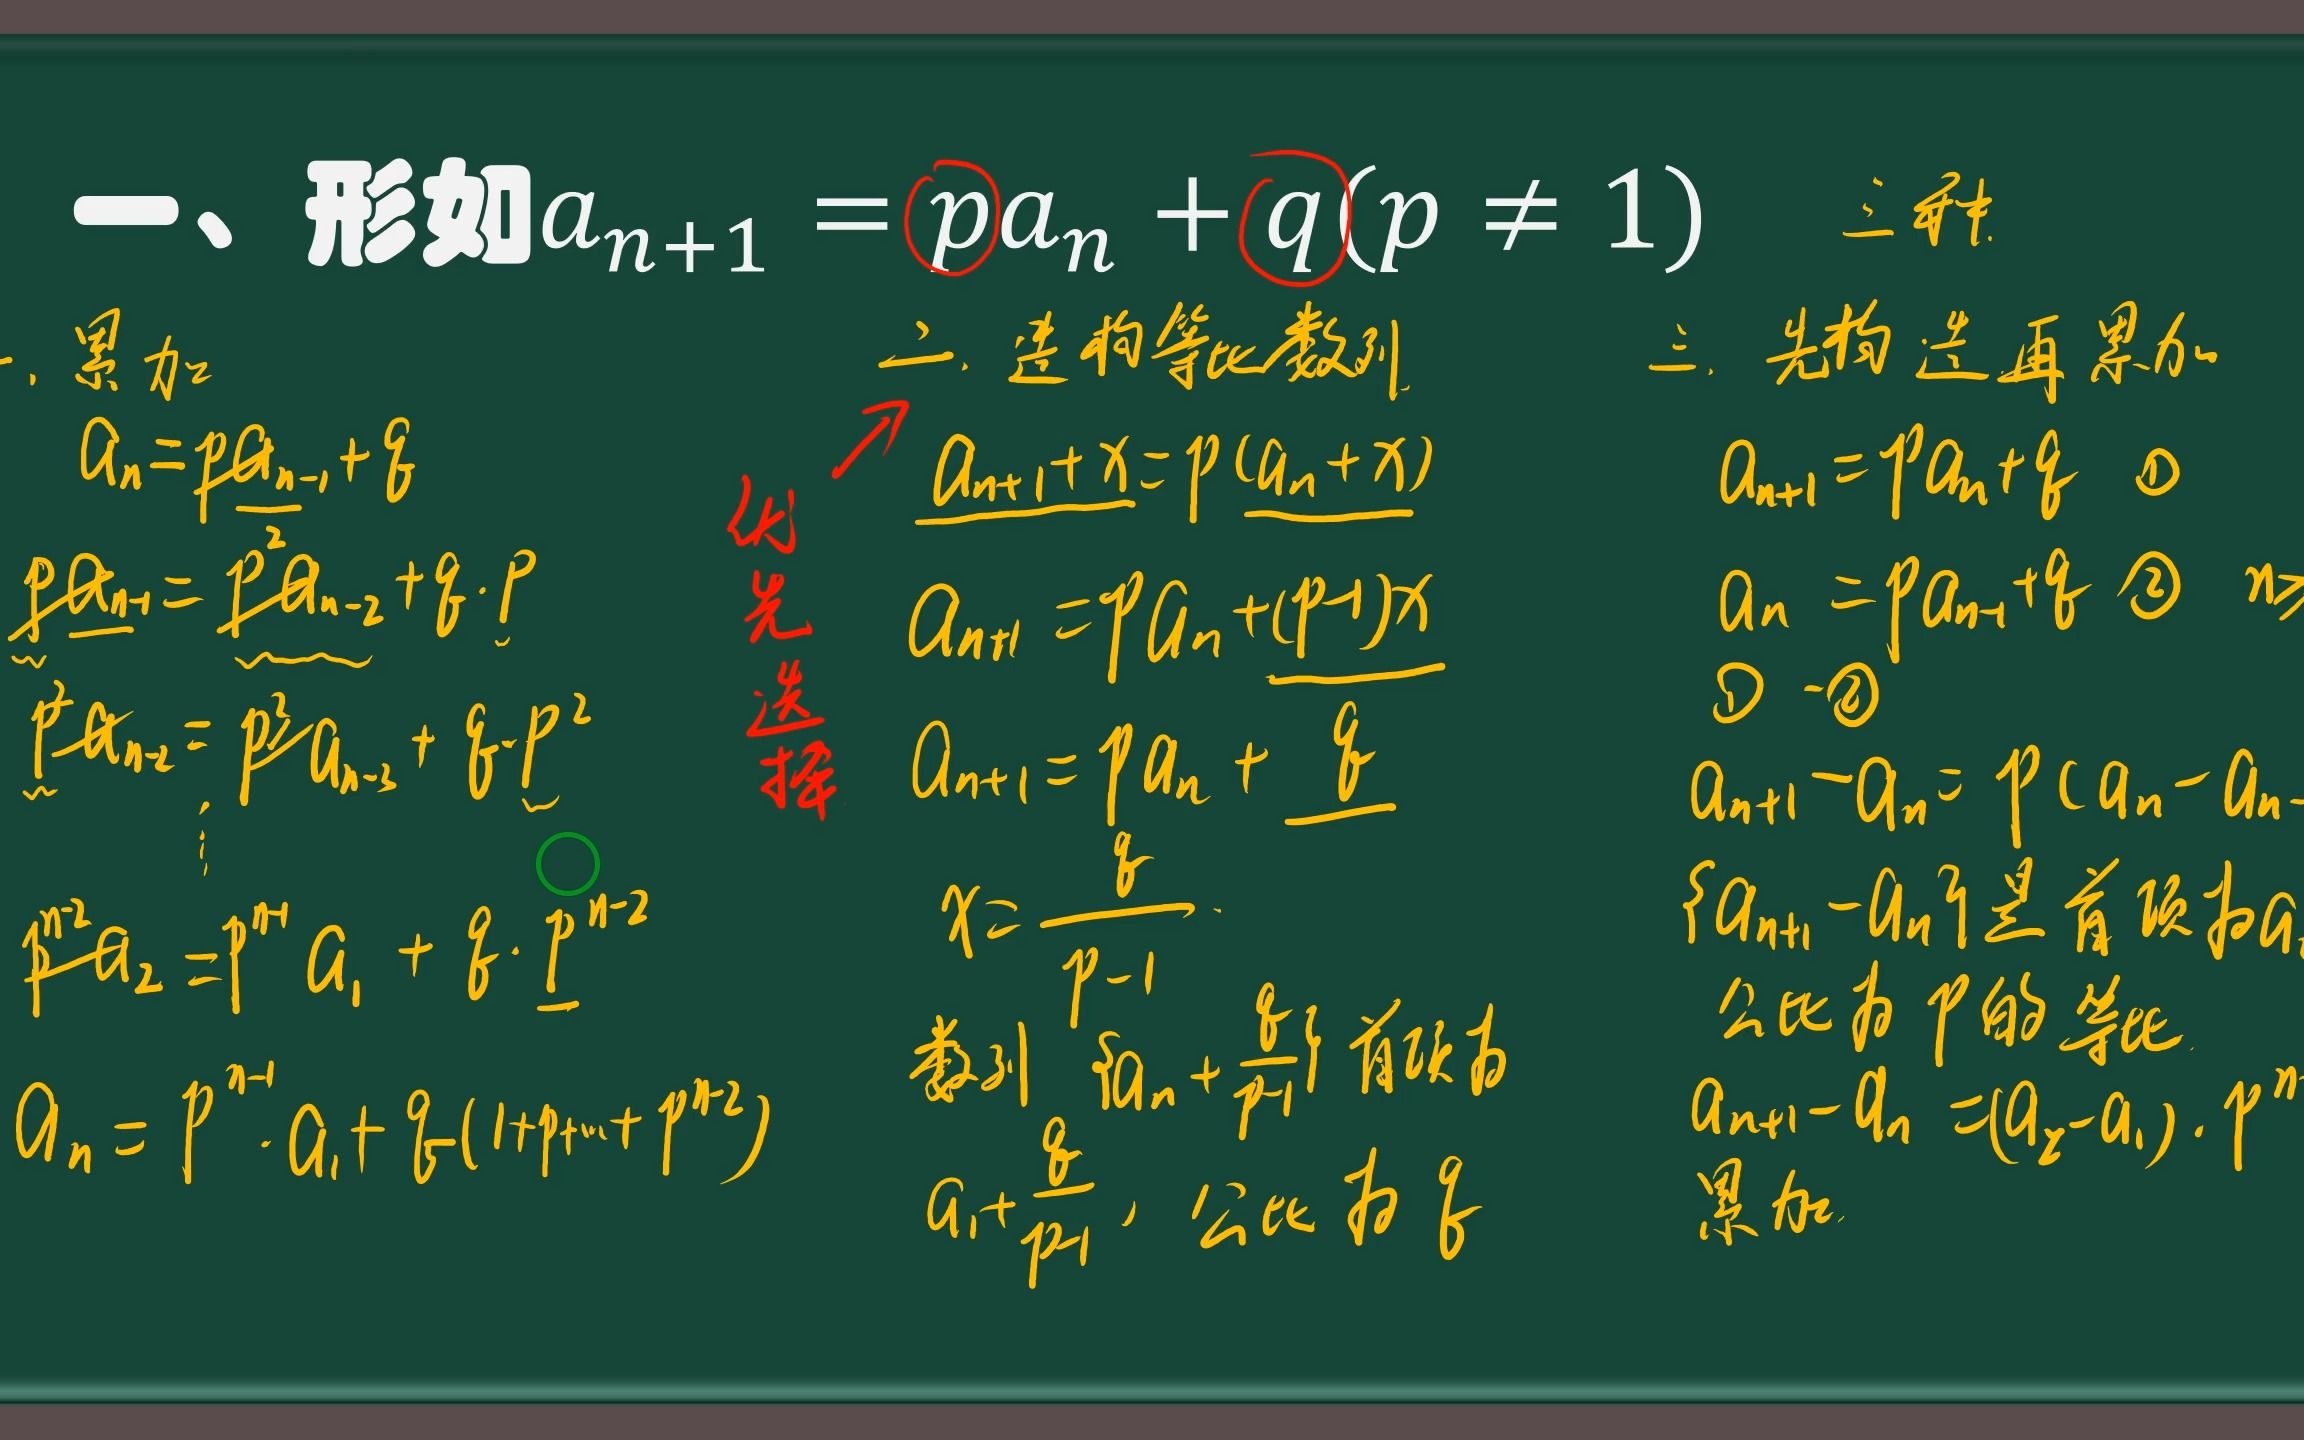 一、形如aₙ₊₁ = paₙ + q(p ≠ 1)
三种.
一. 累加
aₙ=paₙ₋₁+q
paₙ₋₁=p²aₙ₋₂+q·p
p²aₙ₋₂=p³aₙ₋₃+q·p²
⋮
pⁿ⁻²a₂=pⁿ⁻¹a₁+q·pⁿ⁻²
aₙ=pⁿ⁻¹·a₁+q(1+p+…+pⁿ⁻²)
优先选择
二. 造构等比数列.
aₙ₊₁+x=p(aₙ+x)
aₙ₊₁=paₙ+(p-1)x
aₙ₊₁=paₙ+q
x=q/(p-1).
数列{aₙ+q/(p-1)}首项为
a₁+q/(p-1), 公比为q
三. 先构造再累加
aₙ₊₁=paₙ+q ①
aₙ=paₙ₋₁+q ② n≥
①-②
aₙ₊₁-aₙ=p(aₙ-aₙ₋
{aₙ₊₁-aₙ}是首项为a
公比为p的等比.
aₙ₊₁-aₙ=(a₂-a₁)·pⁿ⁻
累加.